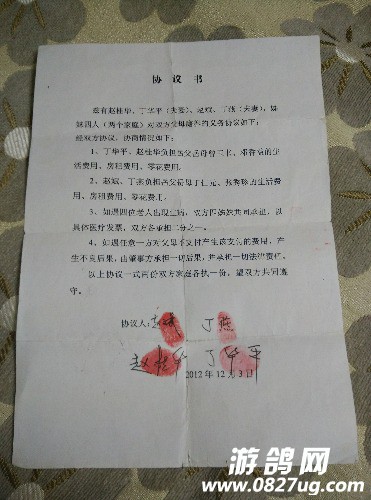 协 议 书
兹有赵桂华、丁华平（夫妻）、赵斌、丁燕（夫妻），姊
妹四人（两个家庭）对双方父母赡养的义务协议如下：
经双方协议，协商情况如下：
1、丁华平、赵桂华负担岳父岳母曾、邓春的生
活费用、房租费用、零花费用。
2、赵斌、丁燕负担岳父母丁仁元、张秀珍的生活费
用、房租费用、零花费用。
3、如遇四位老人出现生病，双方四姊妹共同承担，以
具体医疗发票，双方各承担二分之一。
4、如遇任意一方对父母不支付产生该支付的费用，产
生不良后果，由肇事方承担一切后果，并承担一切法律责任。
以上协议一式两份双方家庭各执一份，望双方共同遵
守。
协议人：赵斌 丁燕
赵桂华 丁华平
2012 年 12 月 3 日
游鸽网
www.0827ug.com